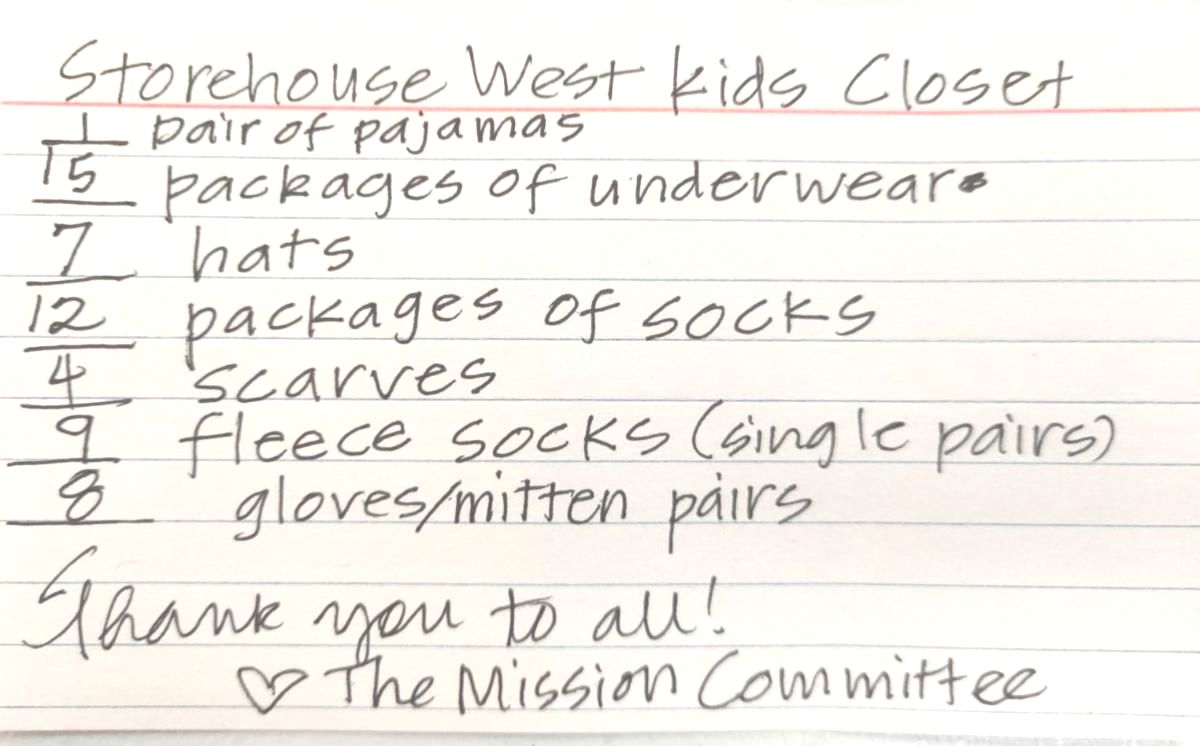 Storehouse West kids Closet
1 pair of pajamas
15 packages of underwear
7 hats
12 packages of socks
4 scarves
9 fleece socks (single pairs)
8 gloves/mitten pairs
Thank you to all!
♡ The Mission Committee